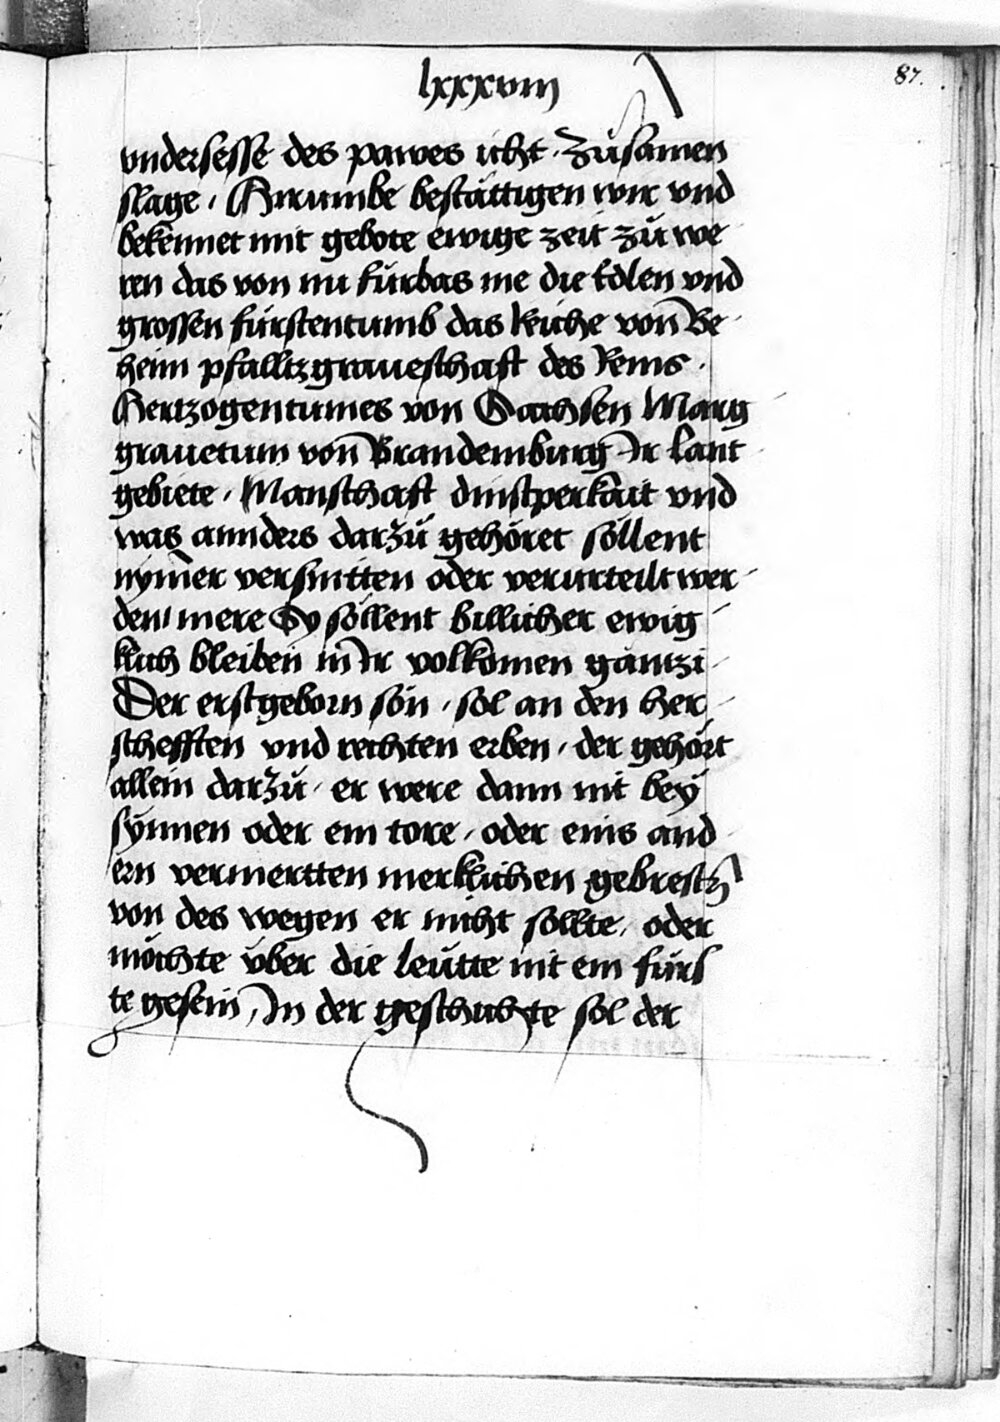 lxxxviii
87.
vndersesse des pawes icht. Zusamen
slage. Hirumbe bestättigen wir vnd
bekennet mit gebote ewige zeit zů we
ren das von nu fúrbas me die Edlen vnd
grossen fúrstentumb das kúche von Be
heim pfalltzgraueschafft des Reins.
Hertzogentumes von Sachsen Marg
grauetum von Brandemburg Ir lant
gebiete. Manschafft dinstperkäit vnd
was annders darzů gehöret söllent
nymer versnitten oder verurteilt wer
den mere Sy söllent billicher ewig
klich bleiben in Ir volkomen gäntzi
Der erstgeborn sön. sol an den her
schefften vnd rechten erben. der gehört
allein darzů. er were dann nit bey
synnen oder ein tore. oder eins and
ern vermertten merklichen gebresten
von des wegen er nicht sollte. oder
möchte über die leütte nit ein fürs
te gesein, In der geschichte sol der